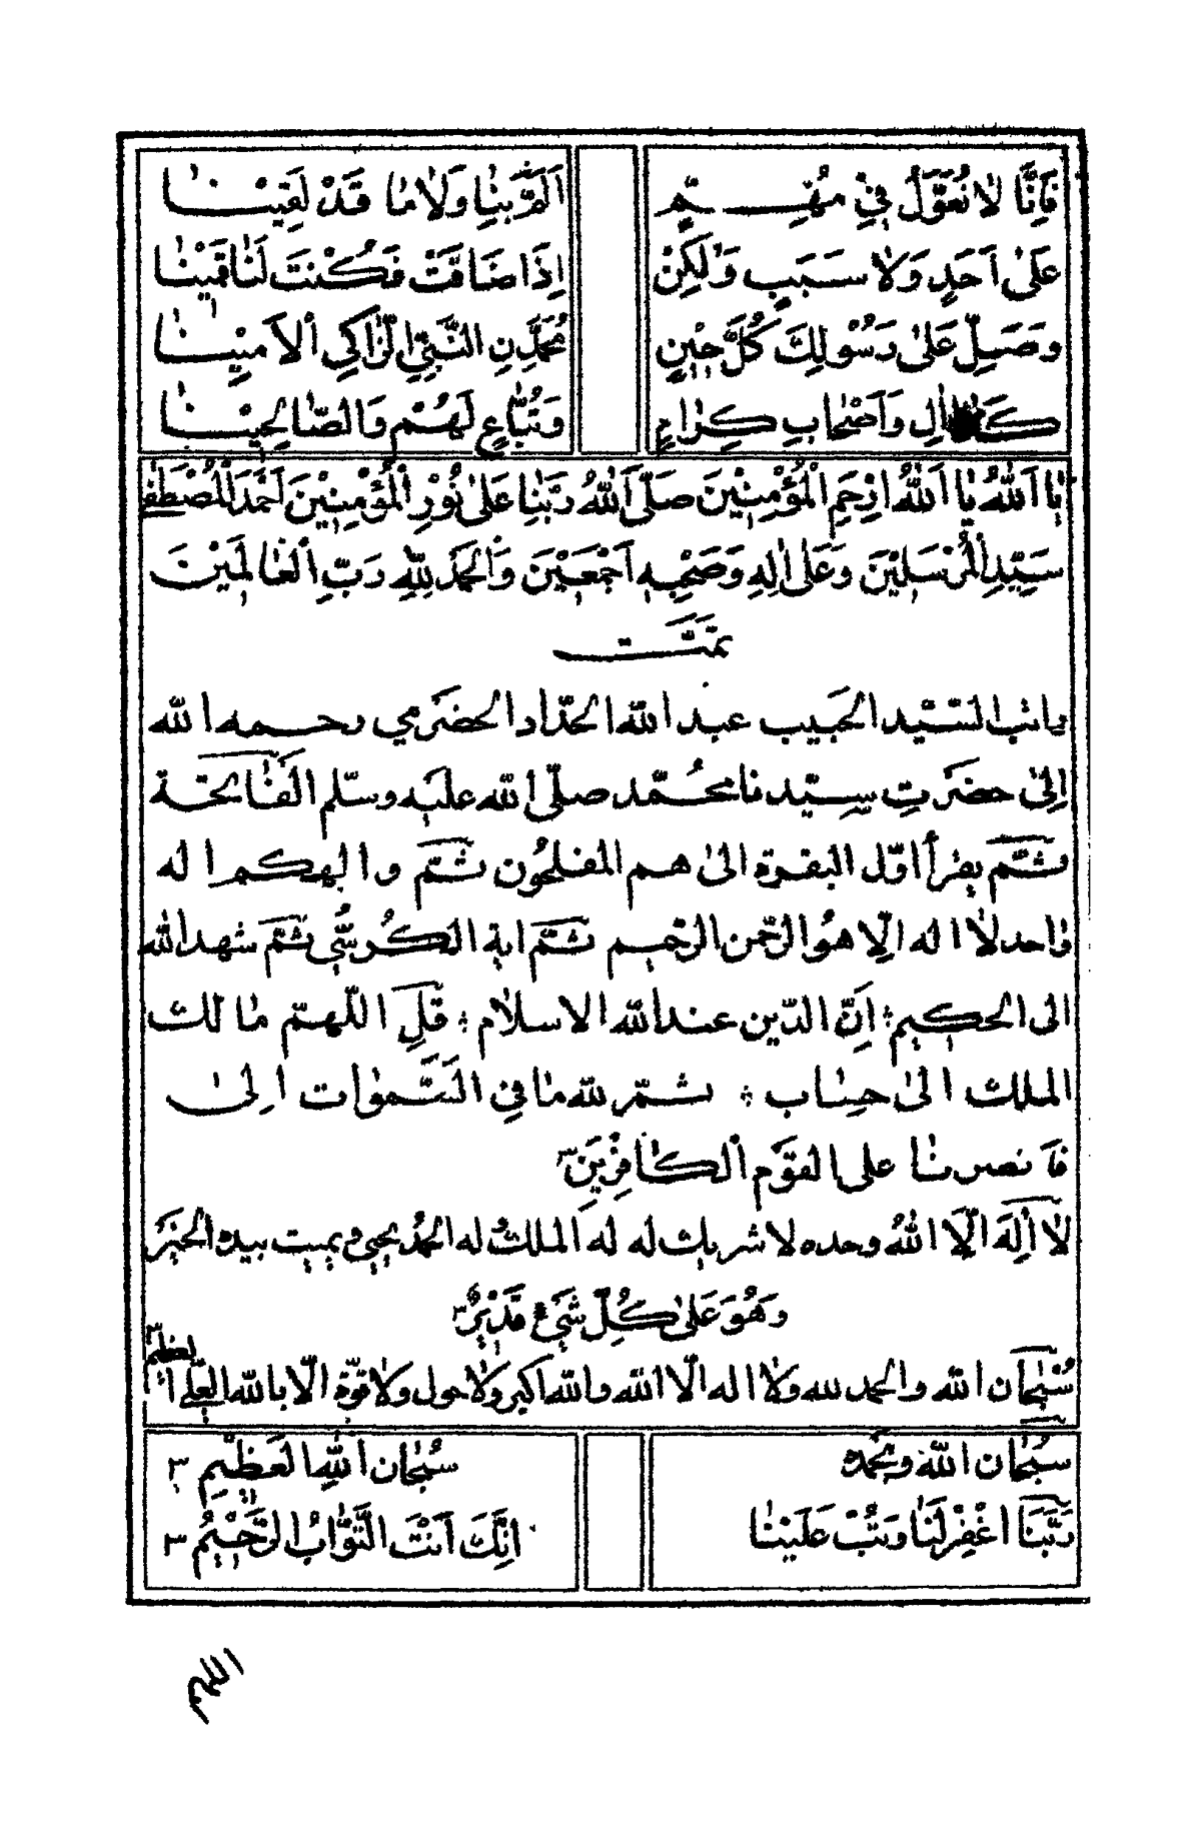 فَاِنَّا لَا نُعَوَّلُ فِيْ مُهِمٍّ اَلَمَّ بِنَا وَلَا مَا قَدْ لَقِيْنَا
عَلٰى اَحَدٍ وَلَا سَبَبٍ وَلٰكِنْ اِذَا ضَاقَتْ فَكُنْتَ لَنَا قَمَيْنَا
وَصَلِّ عَلٰى رَسُوْلِكَ كُلَّ حِيْنٍ مُحَمَّدِنِ النَّبِيِّ الزَّاكِي الْاَمِيْنَا
كَذَا اٰلٍ وَاَصْحَابٍ كِرَامٍ وَتُبَّاعٍ لَهُمْ وَالصَّالِحِيْنَا
يَا اَللّٰهُ يَا اَللّٰهُ ارْحَمِ الْمُؤْمِنِيْنَ صَلَّى اللّٰهُ رَبَّنَا عَلٰى نُوْرِ الْمُؤْمِنِيْنَ اَحْمَدَ الْمُصْطَفٰى
سَيِّدِ الْمُرْسَلِيْنَ وَعَلٰى اٰلِهِ وَصَحْبِهِ اَجْمَعِيْنَ وَالْحَمْدُ لِلّٰهِ رَبِّ الْعَالَمِيْنَ
تَمَّتْ
راتب السّيّد الحَبيب عبد الله الحدّاد الحضَرمي رحمه الله
اِلىٰ حضَرتِ سيّدنا محُمّد صلّى الله عليه وسلّم الفَاتحة
ثمّ يقرأ اوّل البقرة الىٰ هم المفلحُون ثمّ والٰهكم اله
واحد لا اله اِلّا هُو الرّحمن الرّحيم ثمّ اية الكُرسُيّ ثمّ شهد الله
الى الحكيم ؛ اَنّ الدّين عند الله الاسلام ؛ قلِ اللّهمّ مالك
الملك الىٰ حسَاب ؛ ثمّ لله ما في السَّموات اِلىٰ
فا نصرنا على القوَم الكَافِرِينَ ٣
لَا اِلٰهَ اِلَّا اللّٰهُ وحده لا شريك له له الملكُ وله الحمدُ يحيي ويميت بيده الخيَر
وَهُوَ عَلٰى كُلِّ شَيْءٍ قَدِيْرٌ ٣
سُبْحَان الله والحمد لله ولا اله الّا الله والله اكبر ولا حول ولا قوّة الّا بالله العَلّي العظيم ٣
سُبْحَان الله وبحَمده سُبْحَان اللّٰهِ الْعَظِيْمِ ٣
رَبَّنَا اغْفِرْلَنَا وَتُبْ عَلَيْنَا اِنَّكَ اَنْتَ التَّوَّابُ الرَّحِيْمُ ٣
اللهم